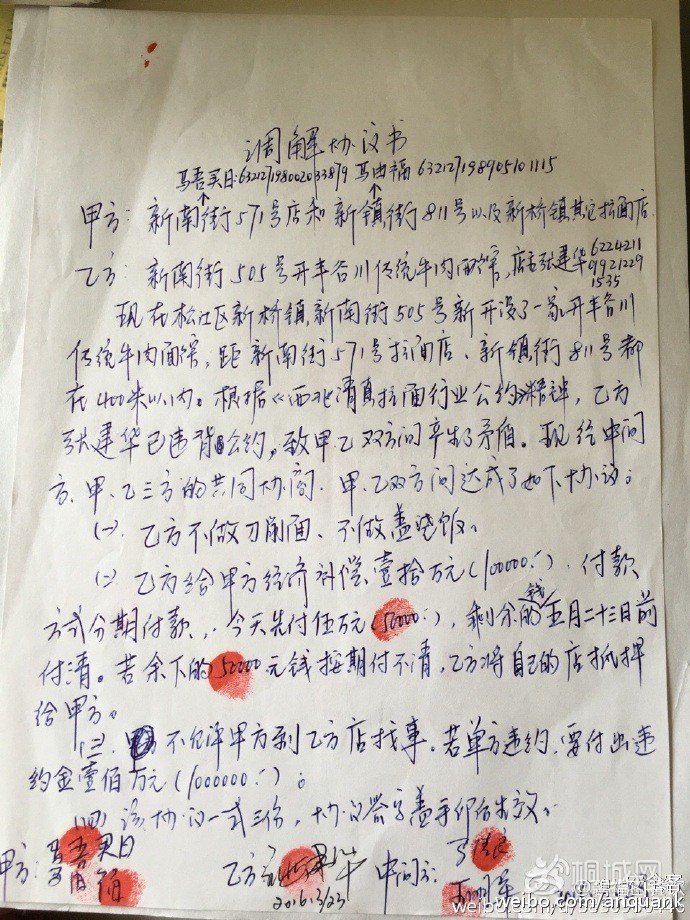 调解协议书
马吾买日:632127198002033879 马由福 632127198905101115
甲方:新南街571号店和新镇街811号以及新桥镇其它拉面店
乙方:新南街505号开丰合川传统牛肉面馆,店主张建华 6224211
09921229
1535
现在松江区新桥镇,新南街505号新开设了一家开丰合川
传统牛肉面馆,距新南街571号拉面店、新镇街811号都
在400米以内。根据《西北清真拉面行业公约》精神,乙方
张建华已违背公约,致甲乙双方间产生了矛盾。现经中间
方、甲、乙三方的共同协商,甲、乙双方间达成了如下协议:
(一)、乙方不做刀削面、不做盖浇饭。
(二)乙方给甲方经济补偿壹拾万元(100000.-),付款
方式分期付款,今天先付伍万元(50000.-),剩余的钱五月二十三日前
付清。若余下的50000元钱按期付不清,乙方将自己的店抵押
给甲方。
(三)、不允许甲方到乙方店找事。若单方违约,要付出违
约金壹佰万元(1000000.-)。
(四)该协议一式三份,协议签字盖手印后生效。
甲方:马吾买日
马由福
乙方:张建华
2016.3/23
中间方:
桐城网
weibo.com/anquank